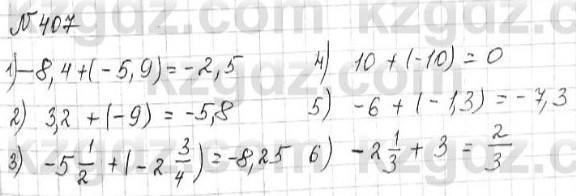 №407
1) -8,4 + (-5,9) = -2,5
2) 3,2 + (-9) = -5,8
3) -5 1/2 + (-2 3/4) = -8,25
4) 10 + (-10) = 0
5) -6 + (-1,3) = -7,3
6) -2 1/3 + 3 = 2/3